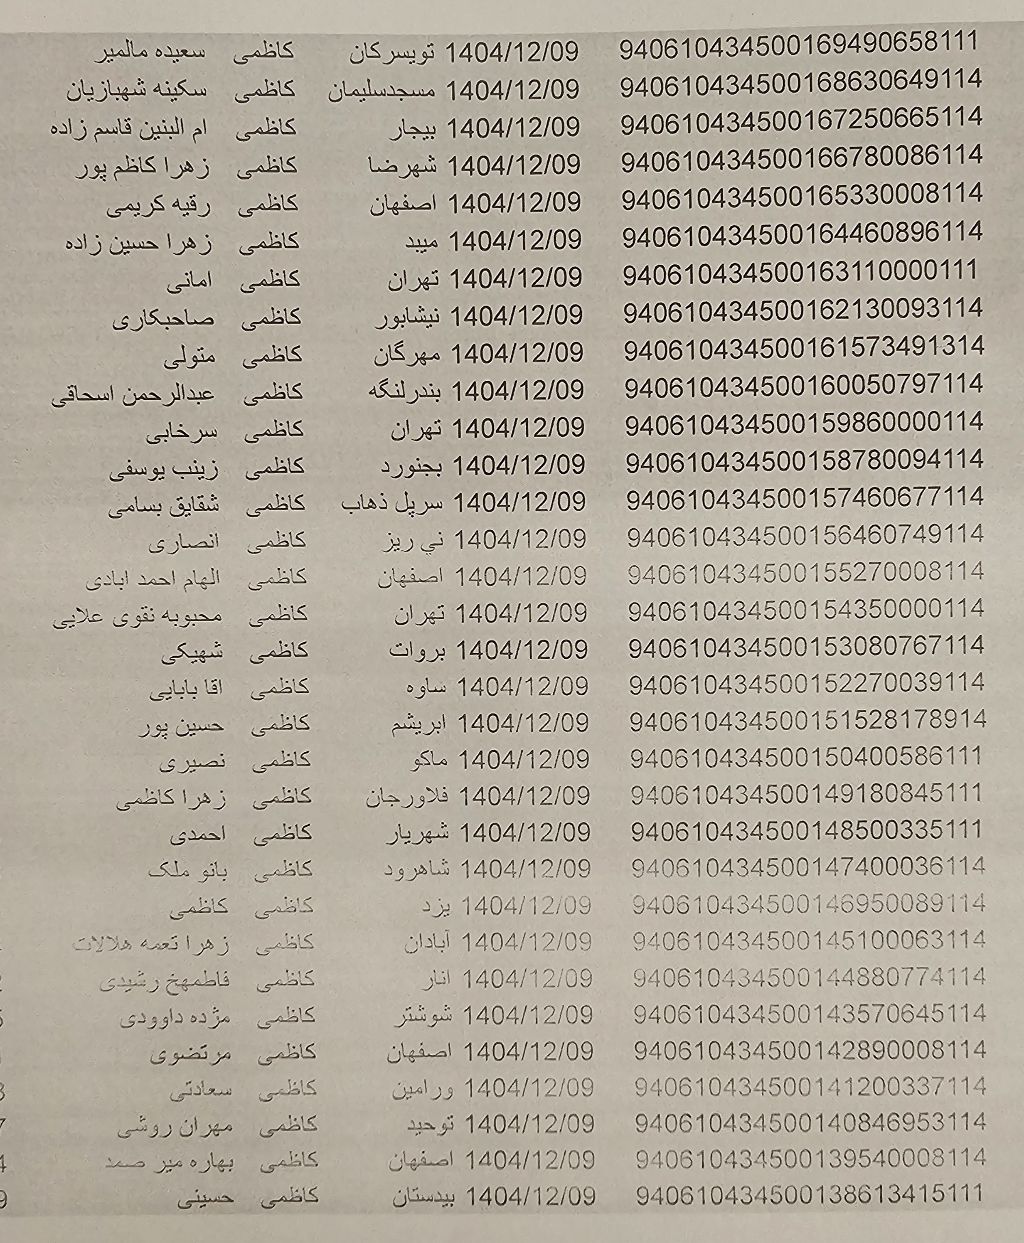 940610434500169490658111 1404/12/09 تويسركان كاظمى سعيده مالمير
940610434500168630649114 1404/12/09 مسجدسليمان كاظمى سكينه شهبازيان
940610434500167250665114 1404/12/09 بيجار كاظمى ام البنين قاسم زاده
940610434500166780086114 1404/12/09 شهرضا كاظمى زهرا كاظم پور
940610434500165330008114 1404/12/09 اصفهان كاظمى رقيه كريمى
940610434500164460896114 1404/12/09 ميبد كاظمى زهرا حسين زاده
940610434500163110000111 1404/12/09 تهران كاظمى امانى
940610434500162130093114 1404/12/09 نيشابور كاظمى صاحبكارى
940610434500161573491314 1404/12/09 مهرگان كاظمى متولى
940610434500160050797114 1404/12/09 بندرلنگه كاظمى عبدالرحمن اسحاقى
940610434500159860000114 1404/12/09 تهران كاظمى سرخابى
940610434500158780094114 1404/12/09 بجنورد كاظمى زينب يوسفى
940610434500157460677114 1404/12/09 سرپل ذهاب كاظمى شقايق بسامى
940610434500156460749114 1404/12/09 ني ريز كاظمى انصارى
940610434500155270008114 1404/12/09 اصفهان كاظمى الهام احمد ابادى
940610434500154350000114 1404/12/09 تهران كاظمى محبوبه نقوى علايى
940610434500153080767114 1404/12/09 بروات كاظمى شهيكى
940610434500152270039114 1404/12/09 ساوه كاظمى اقا بابايى
940610434500151528178914 1404/12/09 ابريشم كاظمى حسين پور
940610434500150400586111 1404/12/09 ماكو كاظمى نصيرى
940610434500149180845111 1404/12/09 فلاورجان كاظمى زهرا كاظمى
940610434500148500335111 1404/12/09 شهريار كاظمى احمدى
940610434500147400036114 1404/12/09 شاهرود كاظمى بانو ملک
940610434500146950089114 1404/12/09 يزد كاظمى كاظمى
940610434500145100063114 1404/12/09 آبادان كاظمى زهرا نعمه هلالات
940610434500144880774114 1404/12/09 انار كاظمى فاطمهخ رشيدى
940610434500143570645114 1404/12/09 شوشتر كاظمى مژده داوودى
940610434500142890008114 1404/12/09 اصفهان كاظمى مرتضوى
940610434500141200337114 1404/12/09 ورامين كاظمى سعادتى
940610434500140846953114 1404/12/09 توحيد كاظمى مهران روشى
940610434500139540008114 1404/12/09 اصفهان كاظمى بهاره مير صمد
940610434500138613415111 1404/12/09 بيدستان كاظمى حسينى